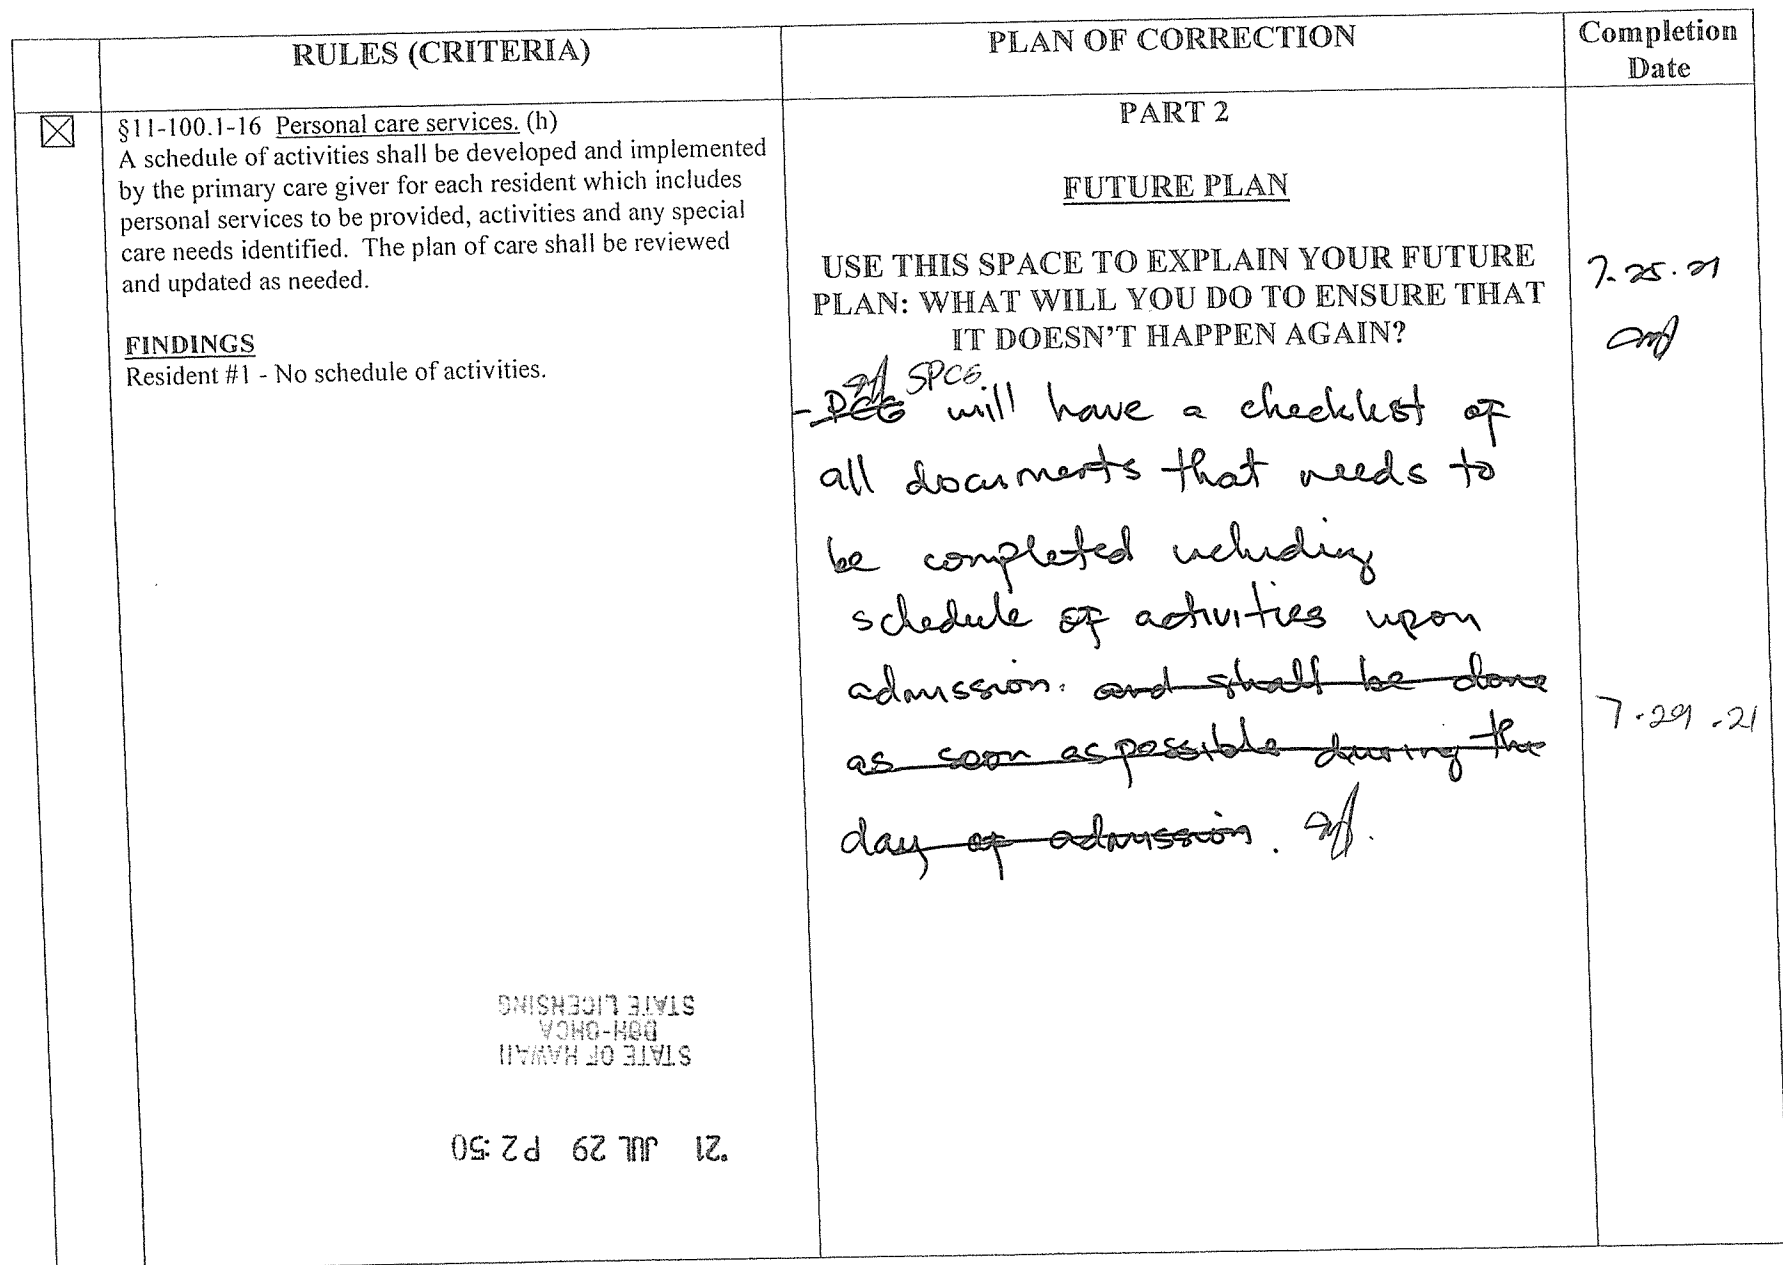 RULES (CRITERIA)
PLAN OF CORRECTION
Completion
Date
§11-100.1-16 Personal care services. (h)
A schedule of activities shall be developed and implemented
by the primary care giver for each resident which includes
personal services to be provided, activities and any special
care needs identified. The plan of care shall be reviewed
and updated as needed.
FINDINGS
Resident #1 - No schedule of activities.
PART 2
FUTURE PLAN
USE THIS SPACE TO EXPLAIN YOUR FUTURE
PLAN: WHAT WILL YOU DO TO ENSURE THAT
IT DOESN'T HAPPEN AGAIN?
SPCG
- PCG will have a checklist of
all documents that needs to
be completed including
schedule of activities upon
admission. and shall be done
as soon as possible during the
day of admission.
7.25.21
7.29.21
STATE OF HAWAII
DOH-OHCA
STATE LICENSING
'21 JUL 29 P2:50